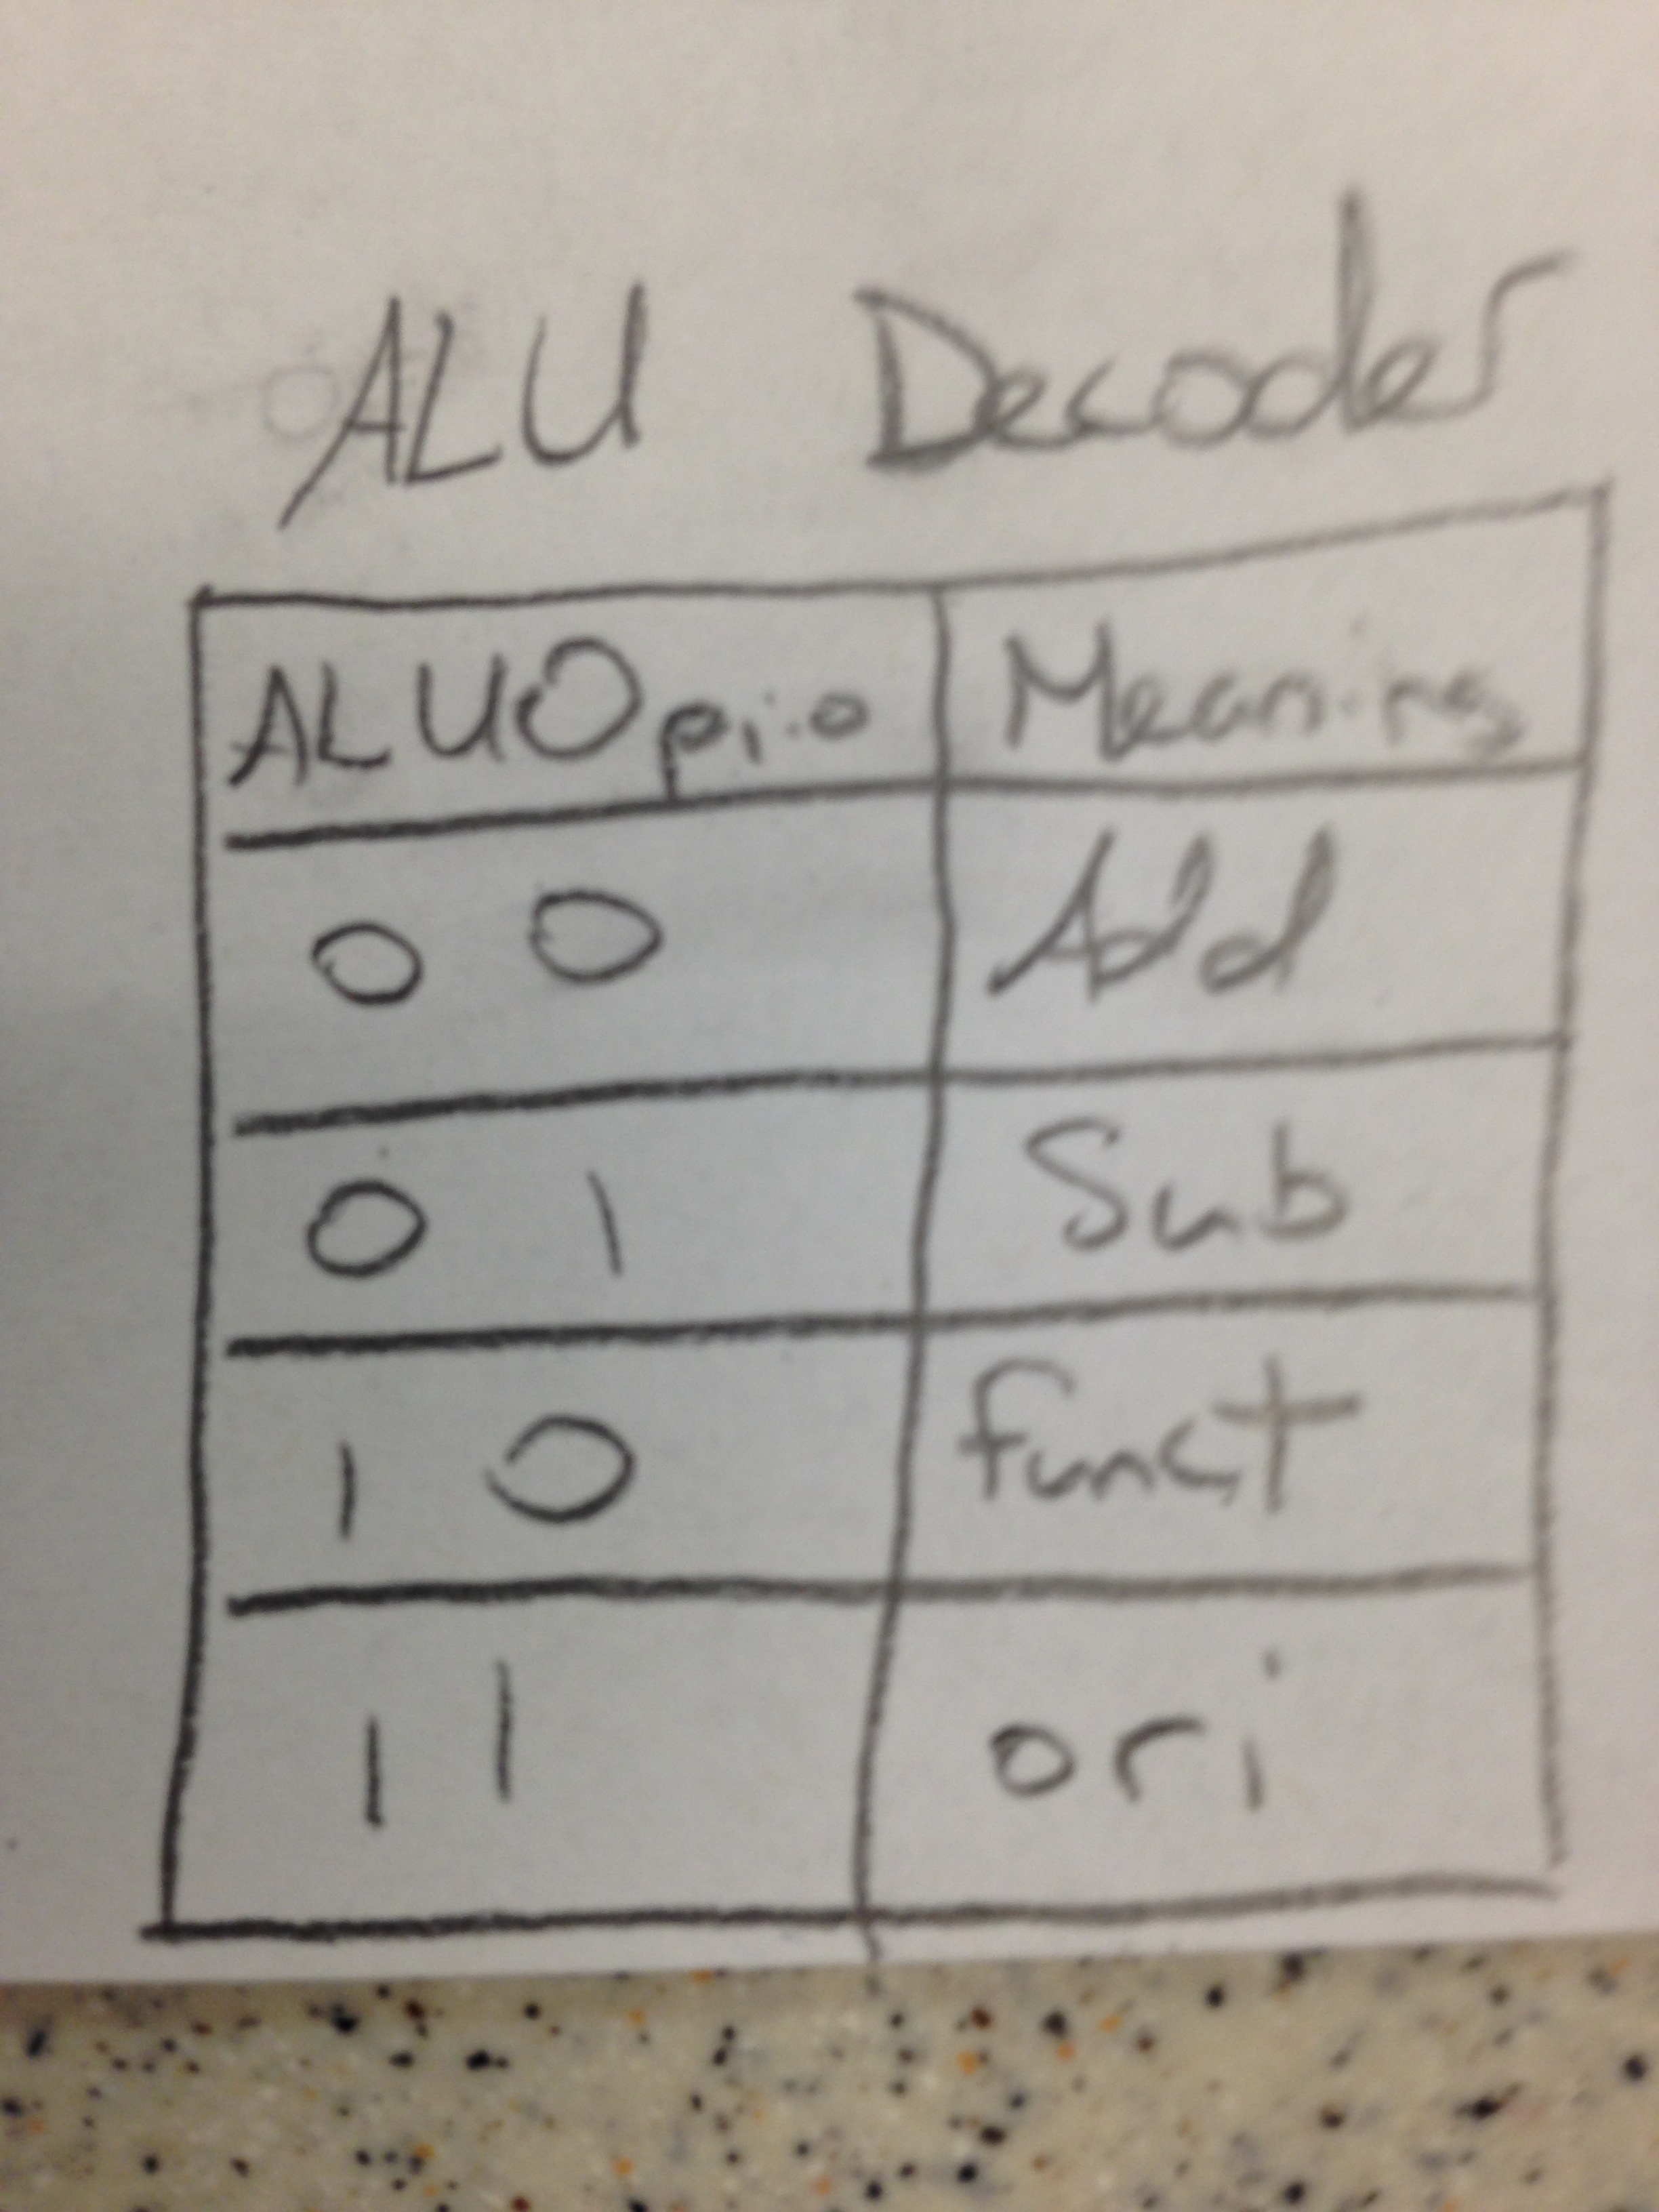 ALU Decoder
ALUOp1:0 Meaning
0 0 Add
0 1 Sub
1 0 funct
1 1 ori